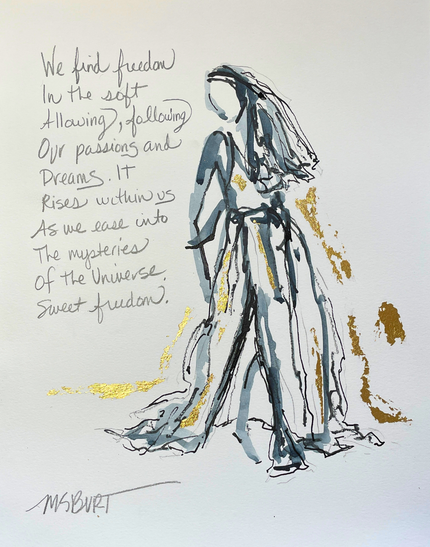 We find freedom
In the soft
Allowing, following
Our passions and
Dreams. It
Rises within us
As we ease into
The mysteries
Of the Universe.
Sweet freedom.
MSBURT